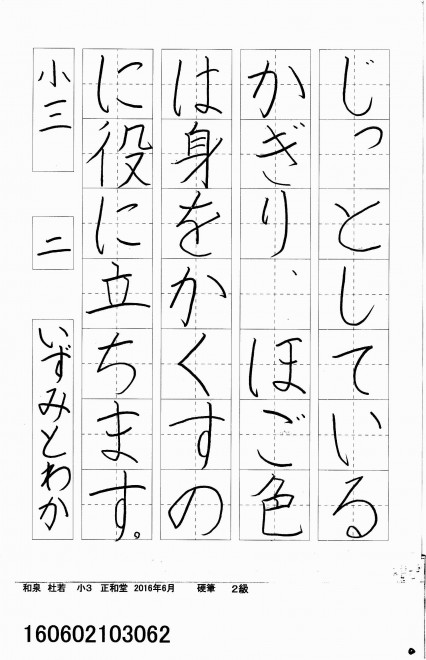 じっとしている
かぎり、ほご色
は身をかくすの
に役に立ちます。
小三 二 いずみとわか
和泉 杜若 小3 正和堂 2016年6月 硬筆 2級
160602103062